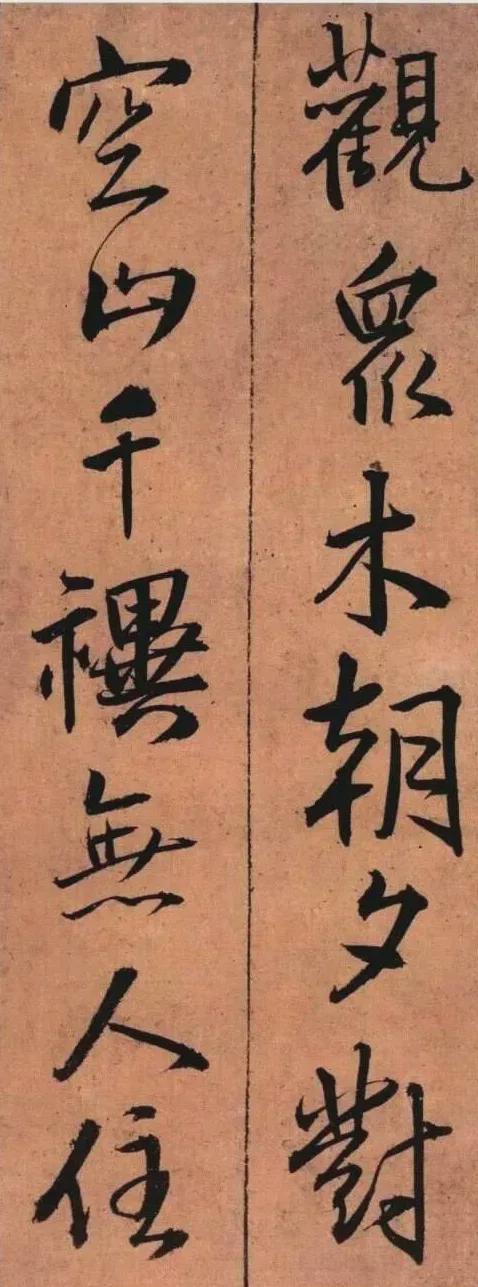 觀衆木朝夕對
空山千禩無人住